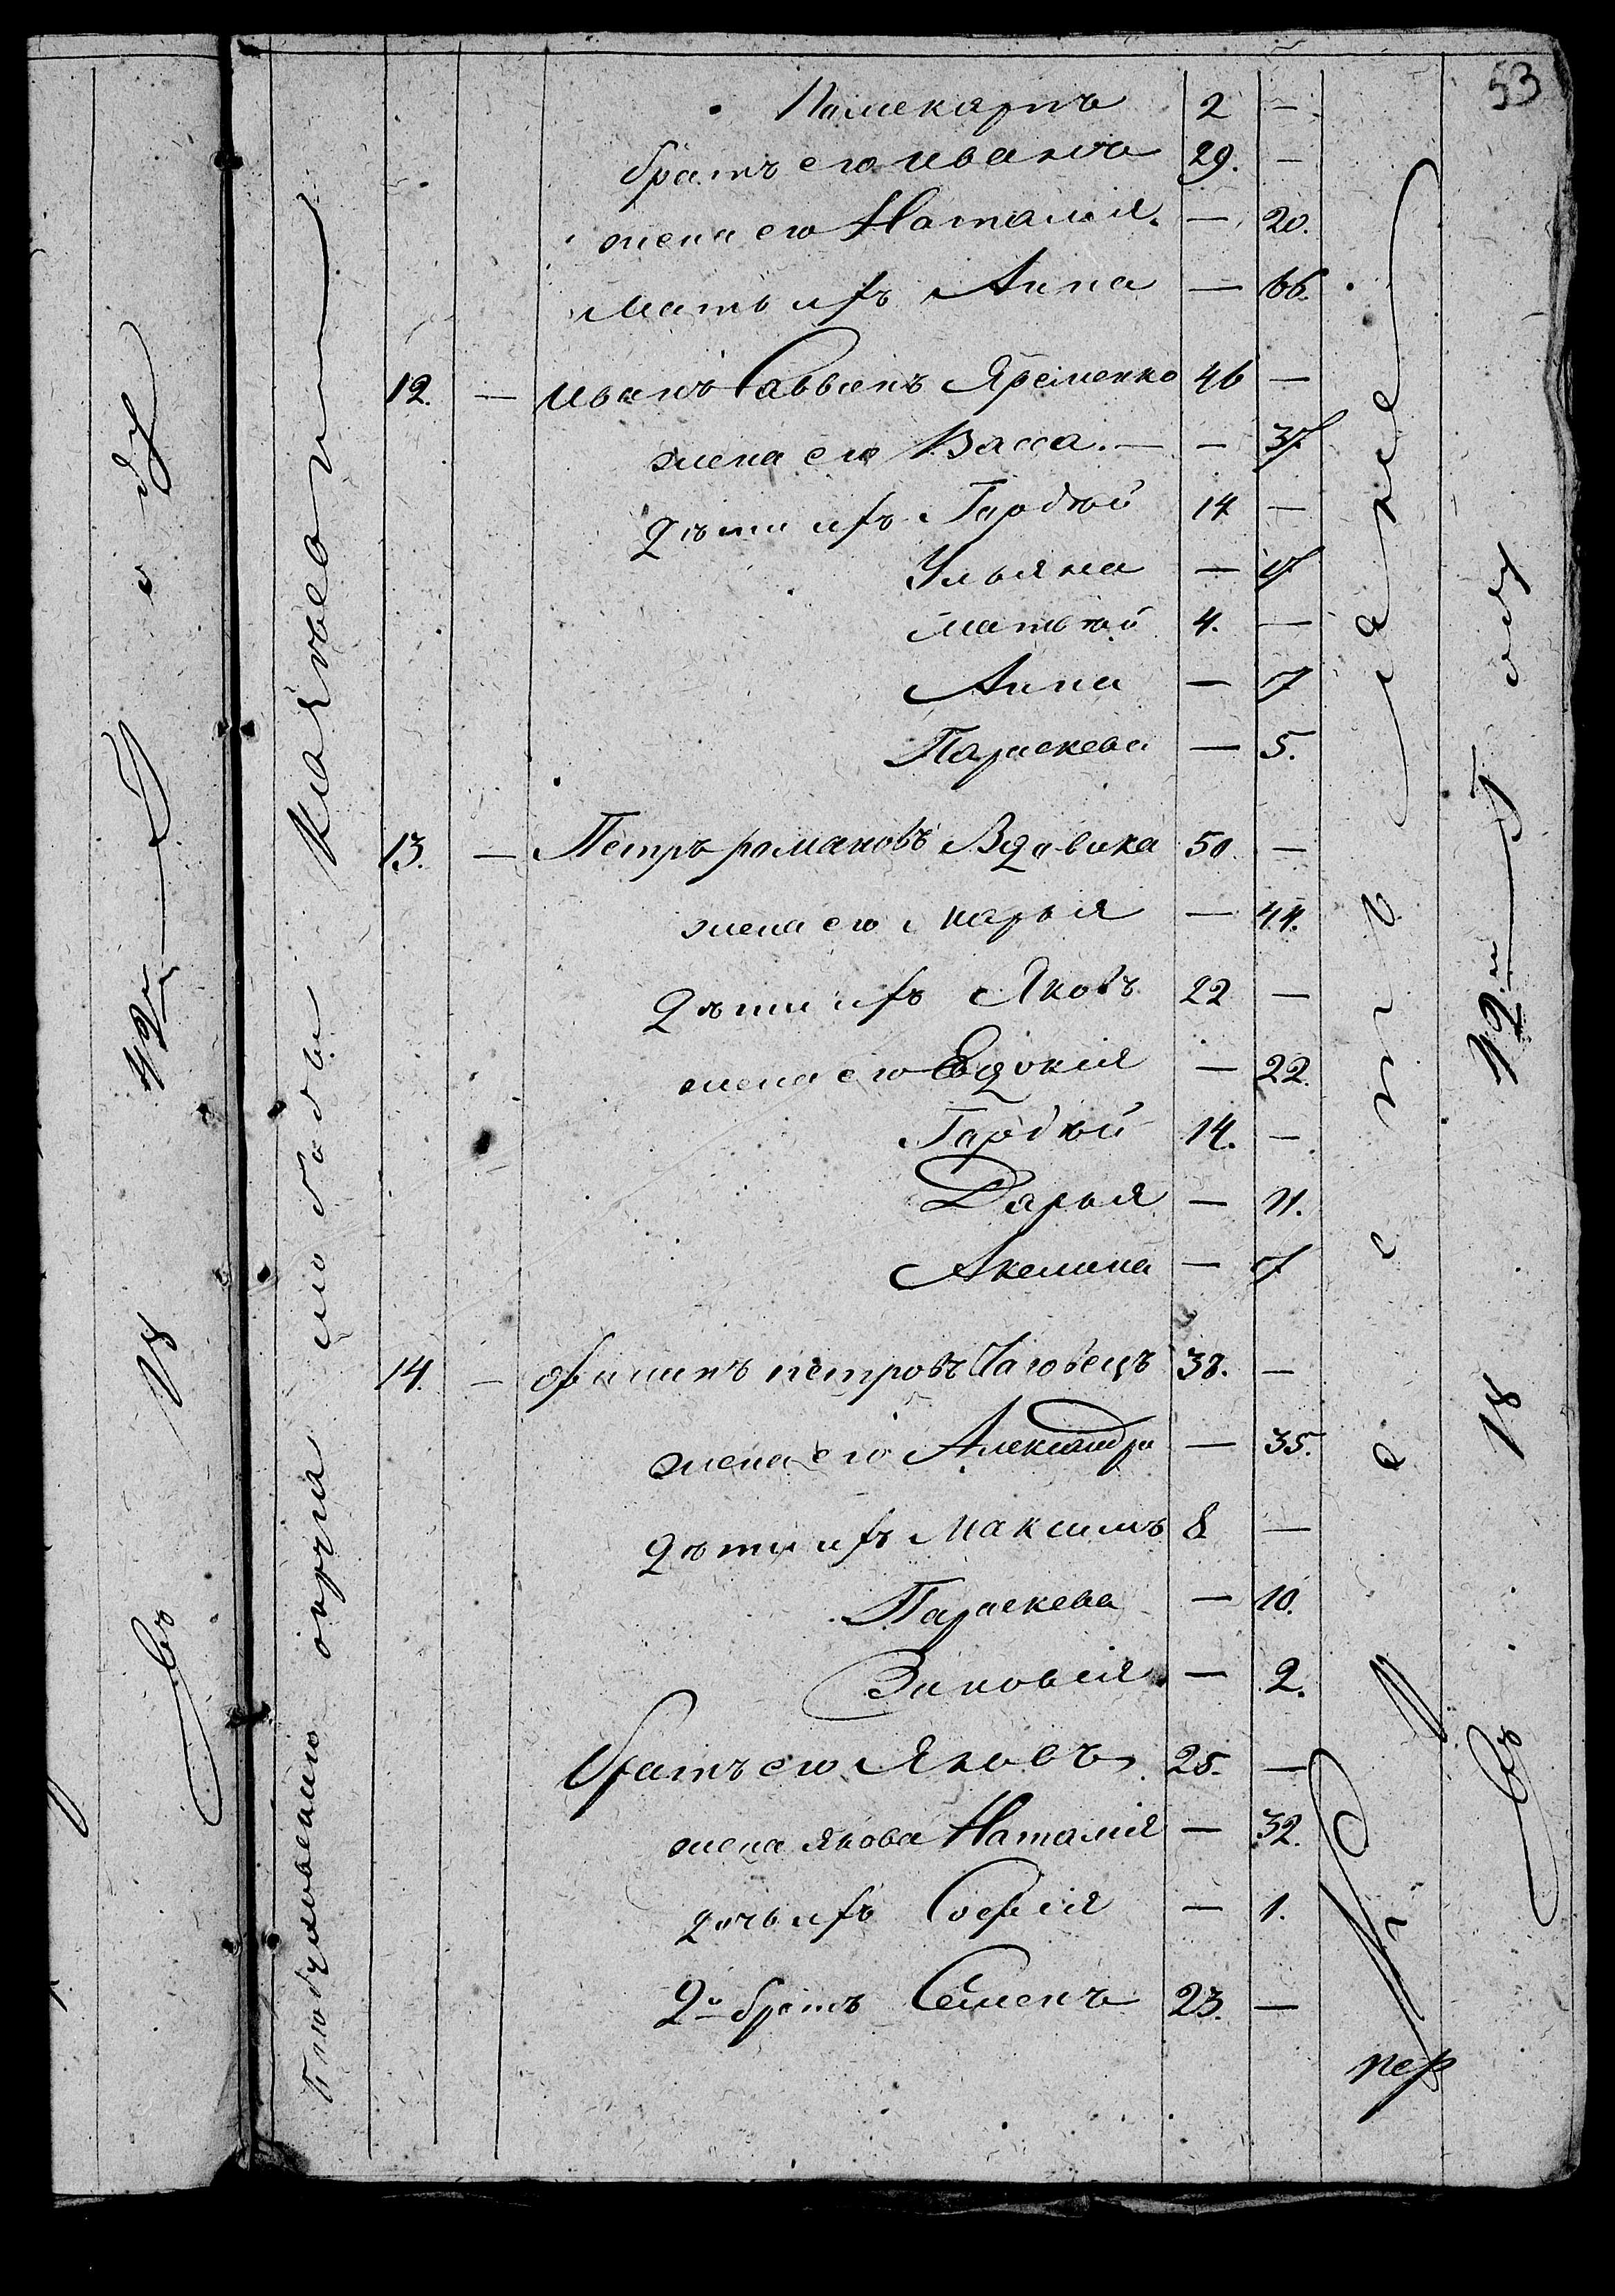 53
Поликарпъ 2 —
братъ его иванъ 29. —
жена его Наталія. — 20.
мать ихъ Анна — 66.
12. — иванъ Саввинъ Яременко 46 —
жена его Васса. — — 37.
дѣти ихъ Гордѣй 14 —
Ульяна — 17
матвѣй 4. —
Анна — 7
Параскева — 5.
13. — Петръ романовъ Вдовика 50. —
жена его марья — 44.
дѣти ихъ Яковъ 22 —
жена его Евдокія — 22.
Гордѣй 14. —
Дарья — 11.
Акелина — 7
14. — Филипъ петровъ Чаговецъ 38. —
жена его Александра — 35.
дѣти ихъ Максимъ 8 —
Параскева — 10.
Зиновія — 2.
братъ его Яковъ 25. —
жена якова Наталія — 32.
дочь ихъ Софія — 1.
2й братъ Семенъ 23. —
округа слободы
Въ 18 12м году
Въ 18 12м году